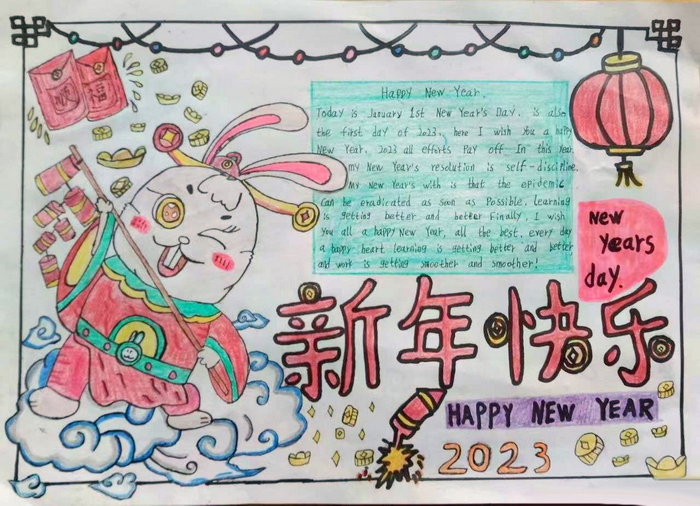 福
Happy New Year.
Today is January 1st New Year's Day, is also
the first day of 2023, here I wish you a happy
New Year, 2023 all efforts Pay off In this Year
my New Year's resolution is self-discipline.
My New Year's with is that the epidemic
can be eradicated as soon as Possible, learning
is getting better and better Finally, I wish
You all a happy New Year, all the best, every day
a happy heart learning is getting better and better
and work is getting smoother and smoother!
New
Years
day.
新年快乐
HAPPY NEW YEAR
2023